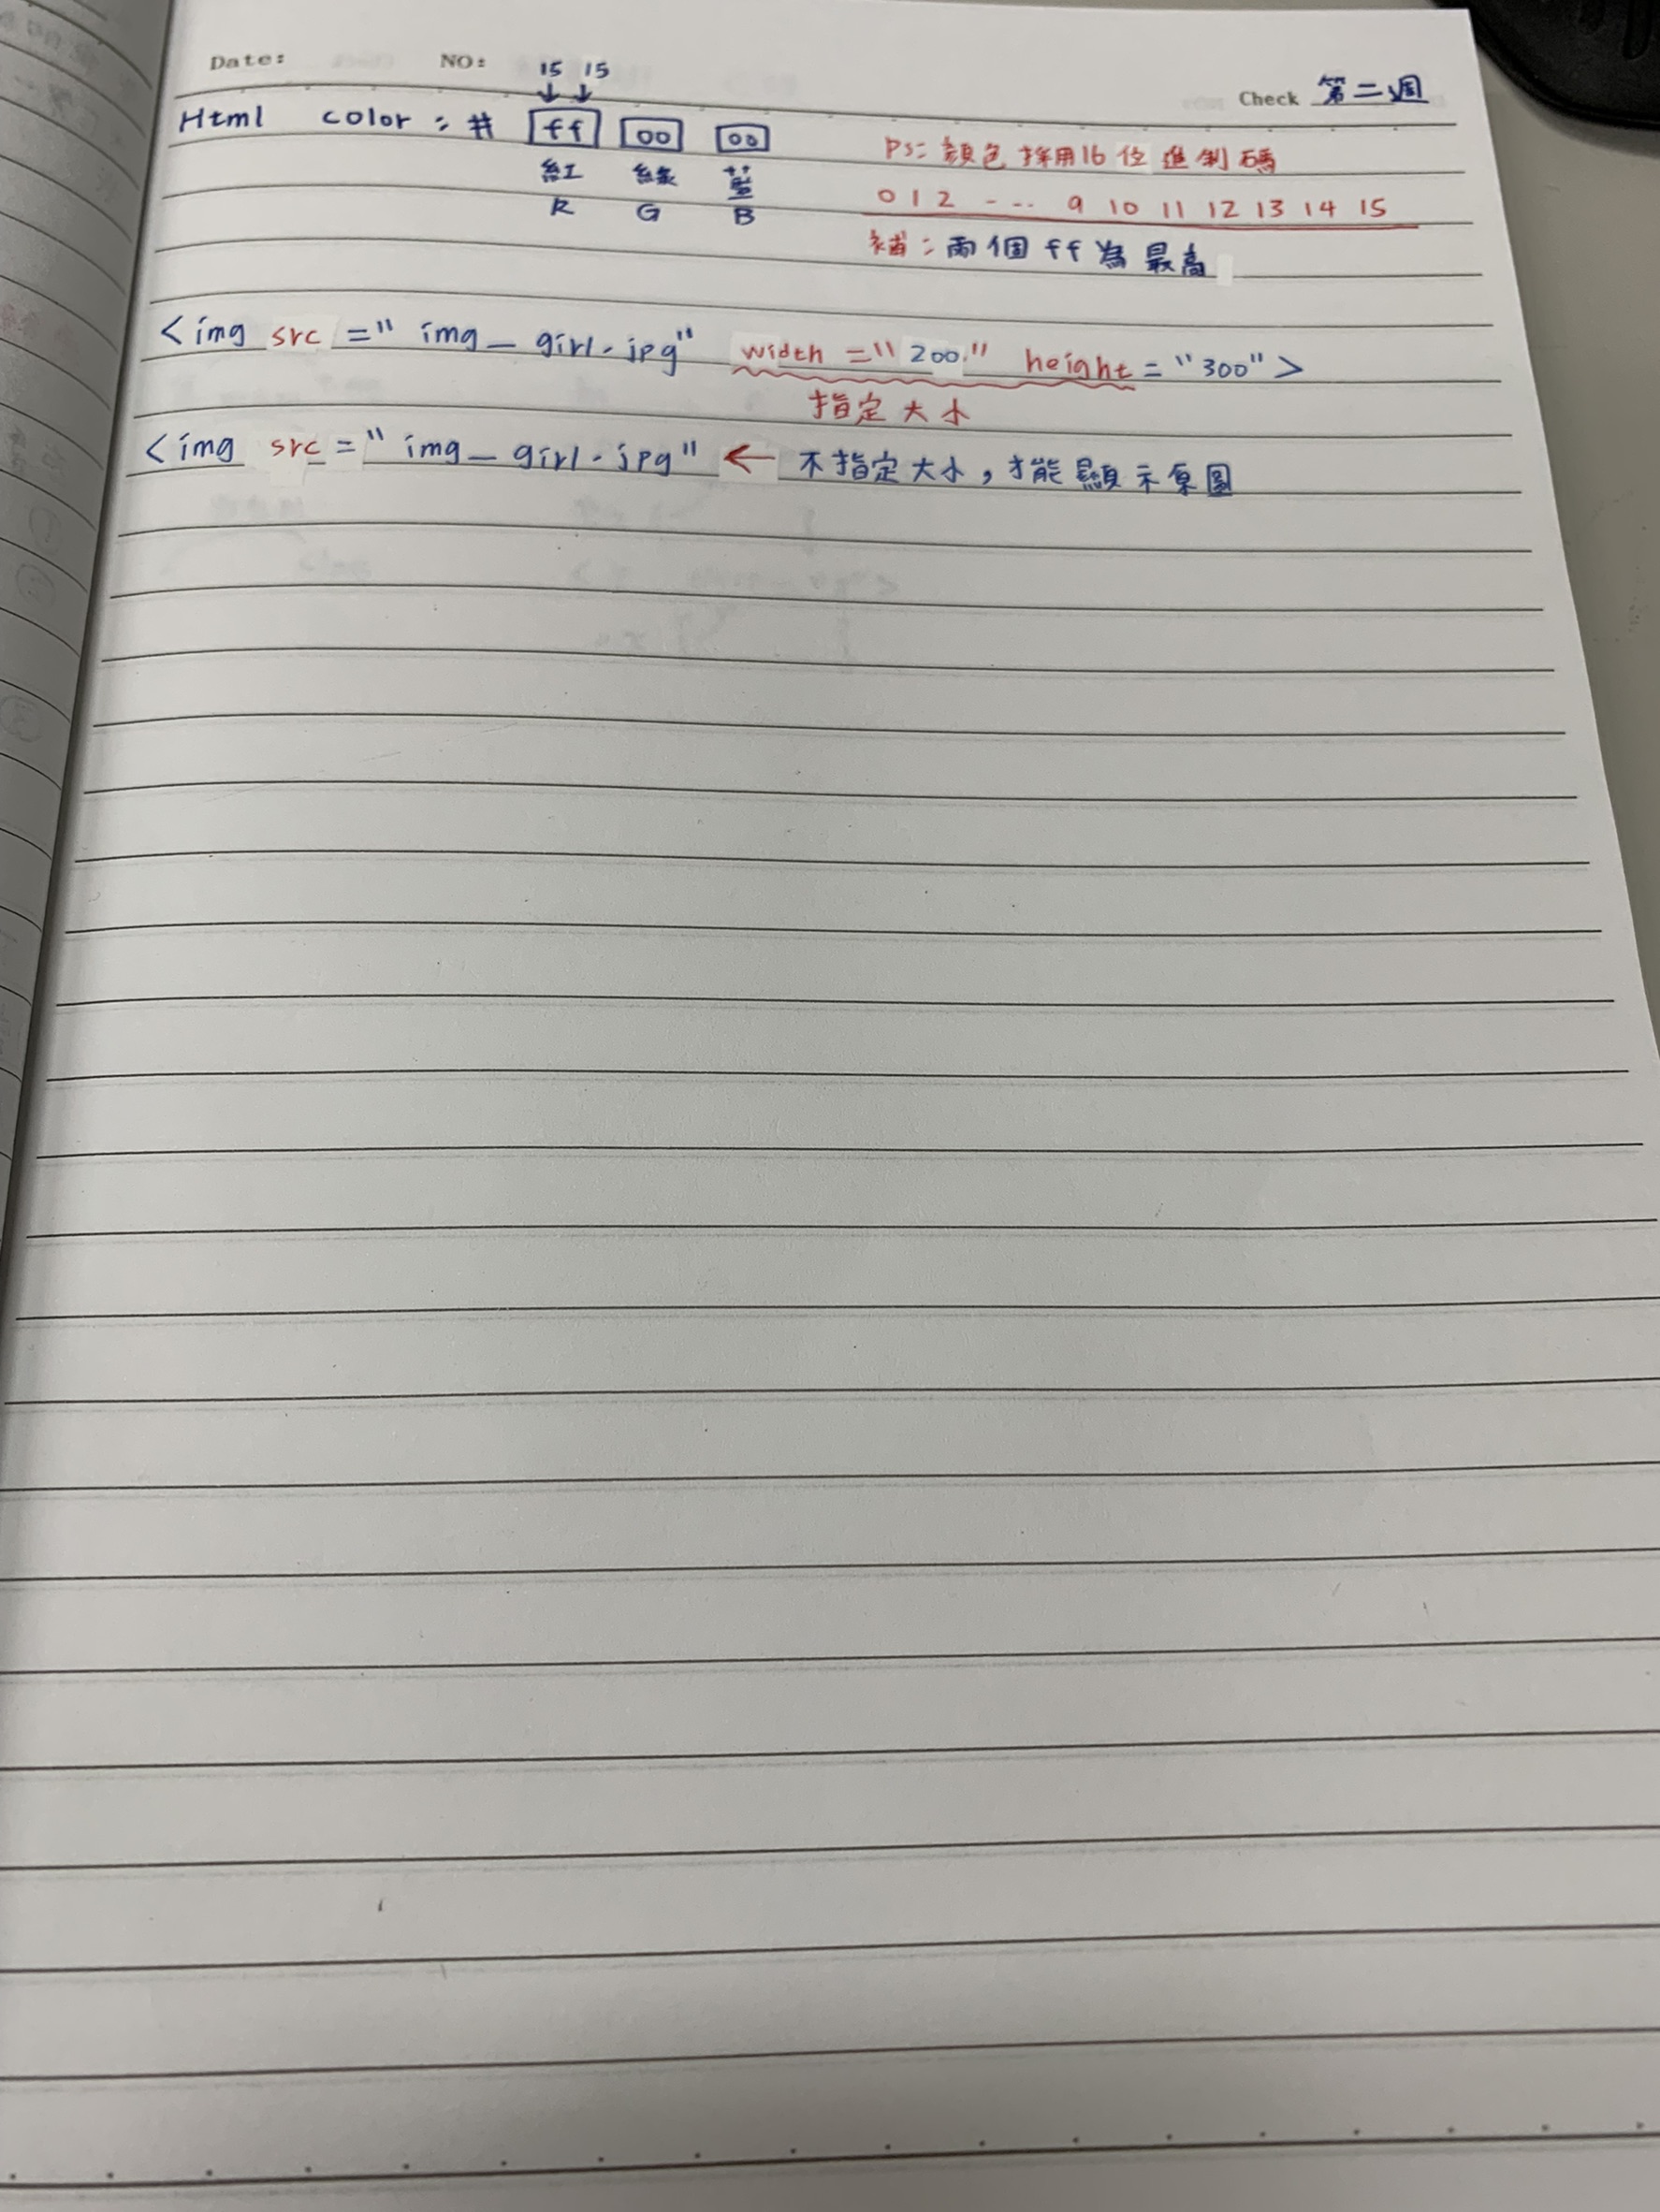 Date: NO: Check 第二週
15 15
Html color : # ff 00 00
紅 綠 藍
R G B
PS: 顏色採用16位進制碼
0 1 2 - -- 9 10 11 12 13 14 15
補: 兩個ff為最高
<img src =" img_ girl.jpg" width ="200." height = "300">
指定大小
<img src =" img_ girl.jpg" ← 不指定大小,才能顯示原圖